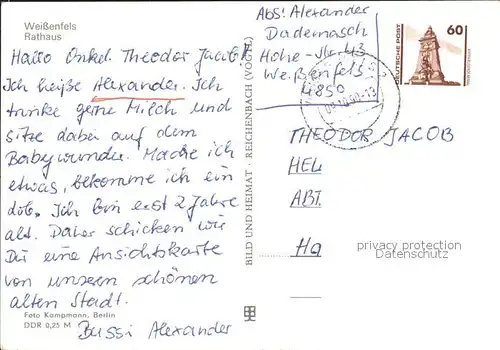 Weißenfels
Rathaus
Hallo Onkel Theodor Jacob!
Ich heiße Alexander. Ich
trinke gerne Milch und
sitze dabei auf dem
Babywunder. Mache ich
etwas, bekomme ich ein
Lob. Ich bin erst 2 Jahre
alt. Daher schicken wir
Dir eine Ansichtskarte
von unseren schönen
alten Stadt.
Bussi Alexander
Foto Kampmann, Berlin
DDR 0,25 M
BILD UND HEIMAT · REICHENBACH (VOGTL.)
Abs: Alexander
Hohe-Str. 43
Weißenfels
4850
DEUTSCHE POST
60
THEODOR JACOB
HEL
ABT.
Ha
privacy protection
Datenschutz